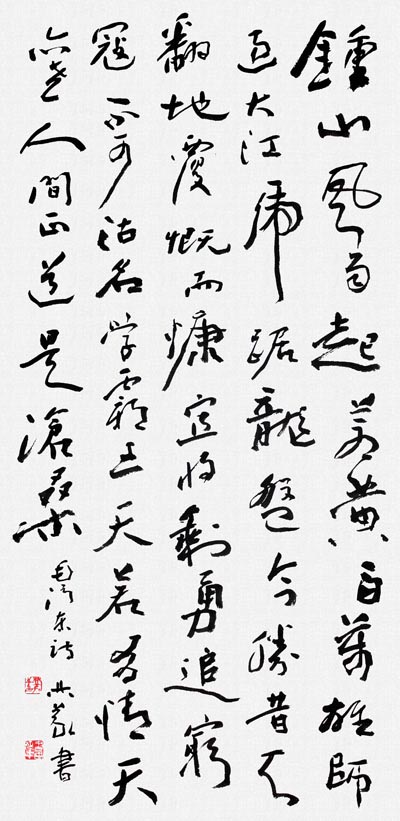 鍾山風雨起蒼黃百萬雄師
過大江虎踞龍盤今勝昔天
翻地覆慨而慷宜將剩勇追窮
寇不可沽名學霸王天若有情天
亦老人間正道是滄桑
毛澤東詩 書